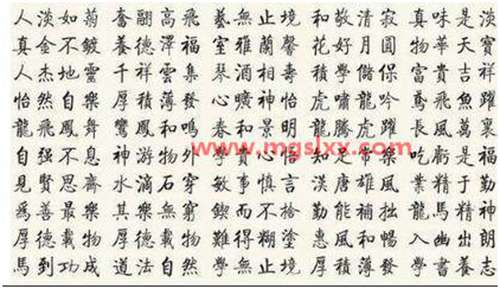 人淡如菊 奮翮高飛 藝無止境 和敬清寂 真味是淡
真金不鍍 養德澤福 室雅蘭馨 花好月圓 物華天寶
人杰地靈 千祥雲集 琴酒相壽 積學儲 富貴吉祥
怡然自樂 厚積薄發 心曠神怡 虎嘯龍吟 鳶飛魚躍
龍飛鳳舞 鸞鳳和鳴 春和景明 龍騰虎躍 長風萬裏
自强不息 神游物外 學貫心悟 知足常樂 吃虧是福
見賢思齊 水滴石穿 敏事慎言 漢唐雄風 業精于勤
爲善最樂 其樂無窮 鍥而不捨 勤能補拙 龍馬精神
厚德載物 厚德載物 難得糊塗 惠風和暢 入幽出朗
馬到功成 道法自然 學無止境 厚積薄發 學書養志
www.mgslxx.com